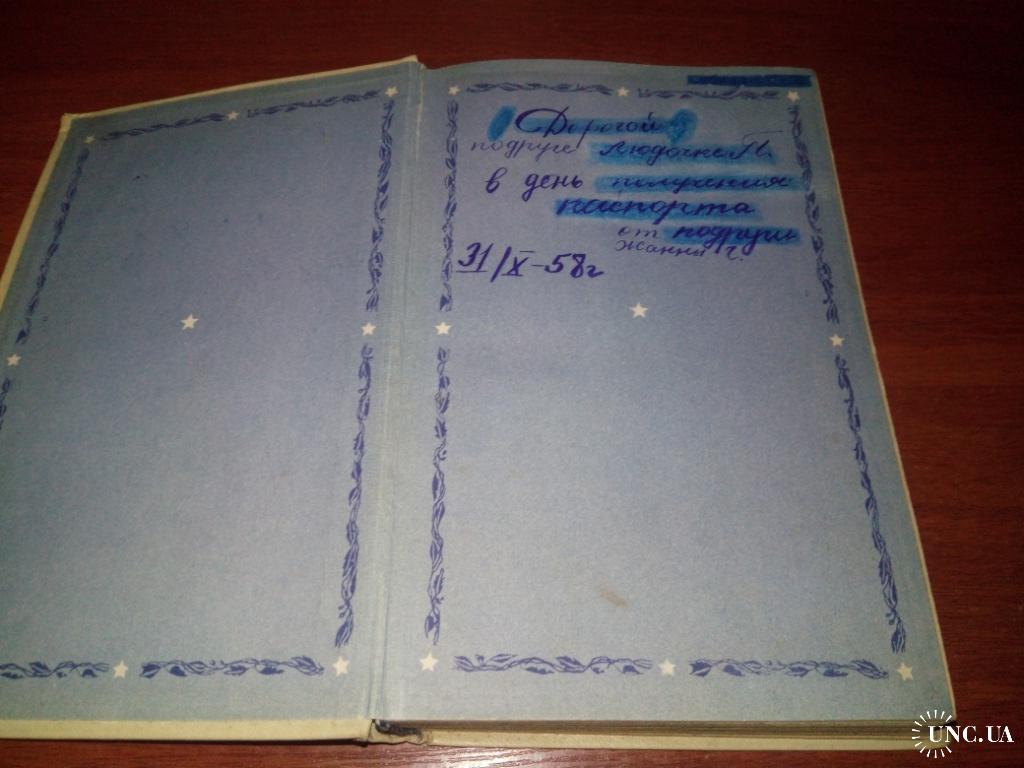 Дорогой
подруге Людочке П.
в день получения
паспорта
от подруги
Жанны Ч.
31/X-58г
UNC.UA